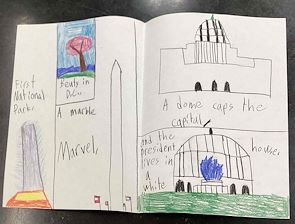 First
National
Park.
Beauty in
D.C.
A marble
Marvel.
A dome caps the
capital
and the
president
lives in
a
white
house.